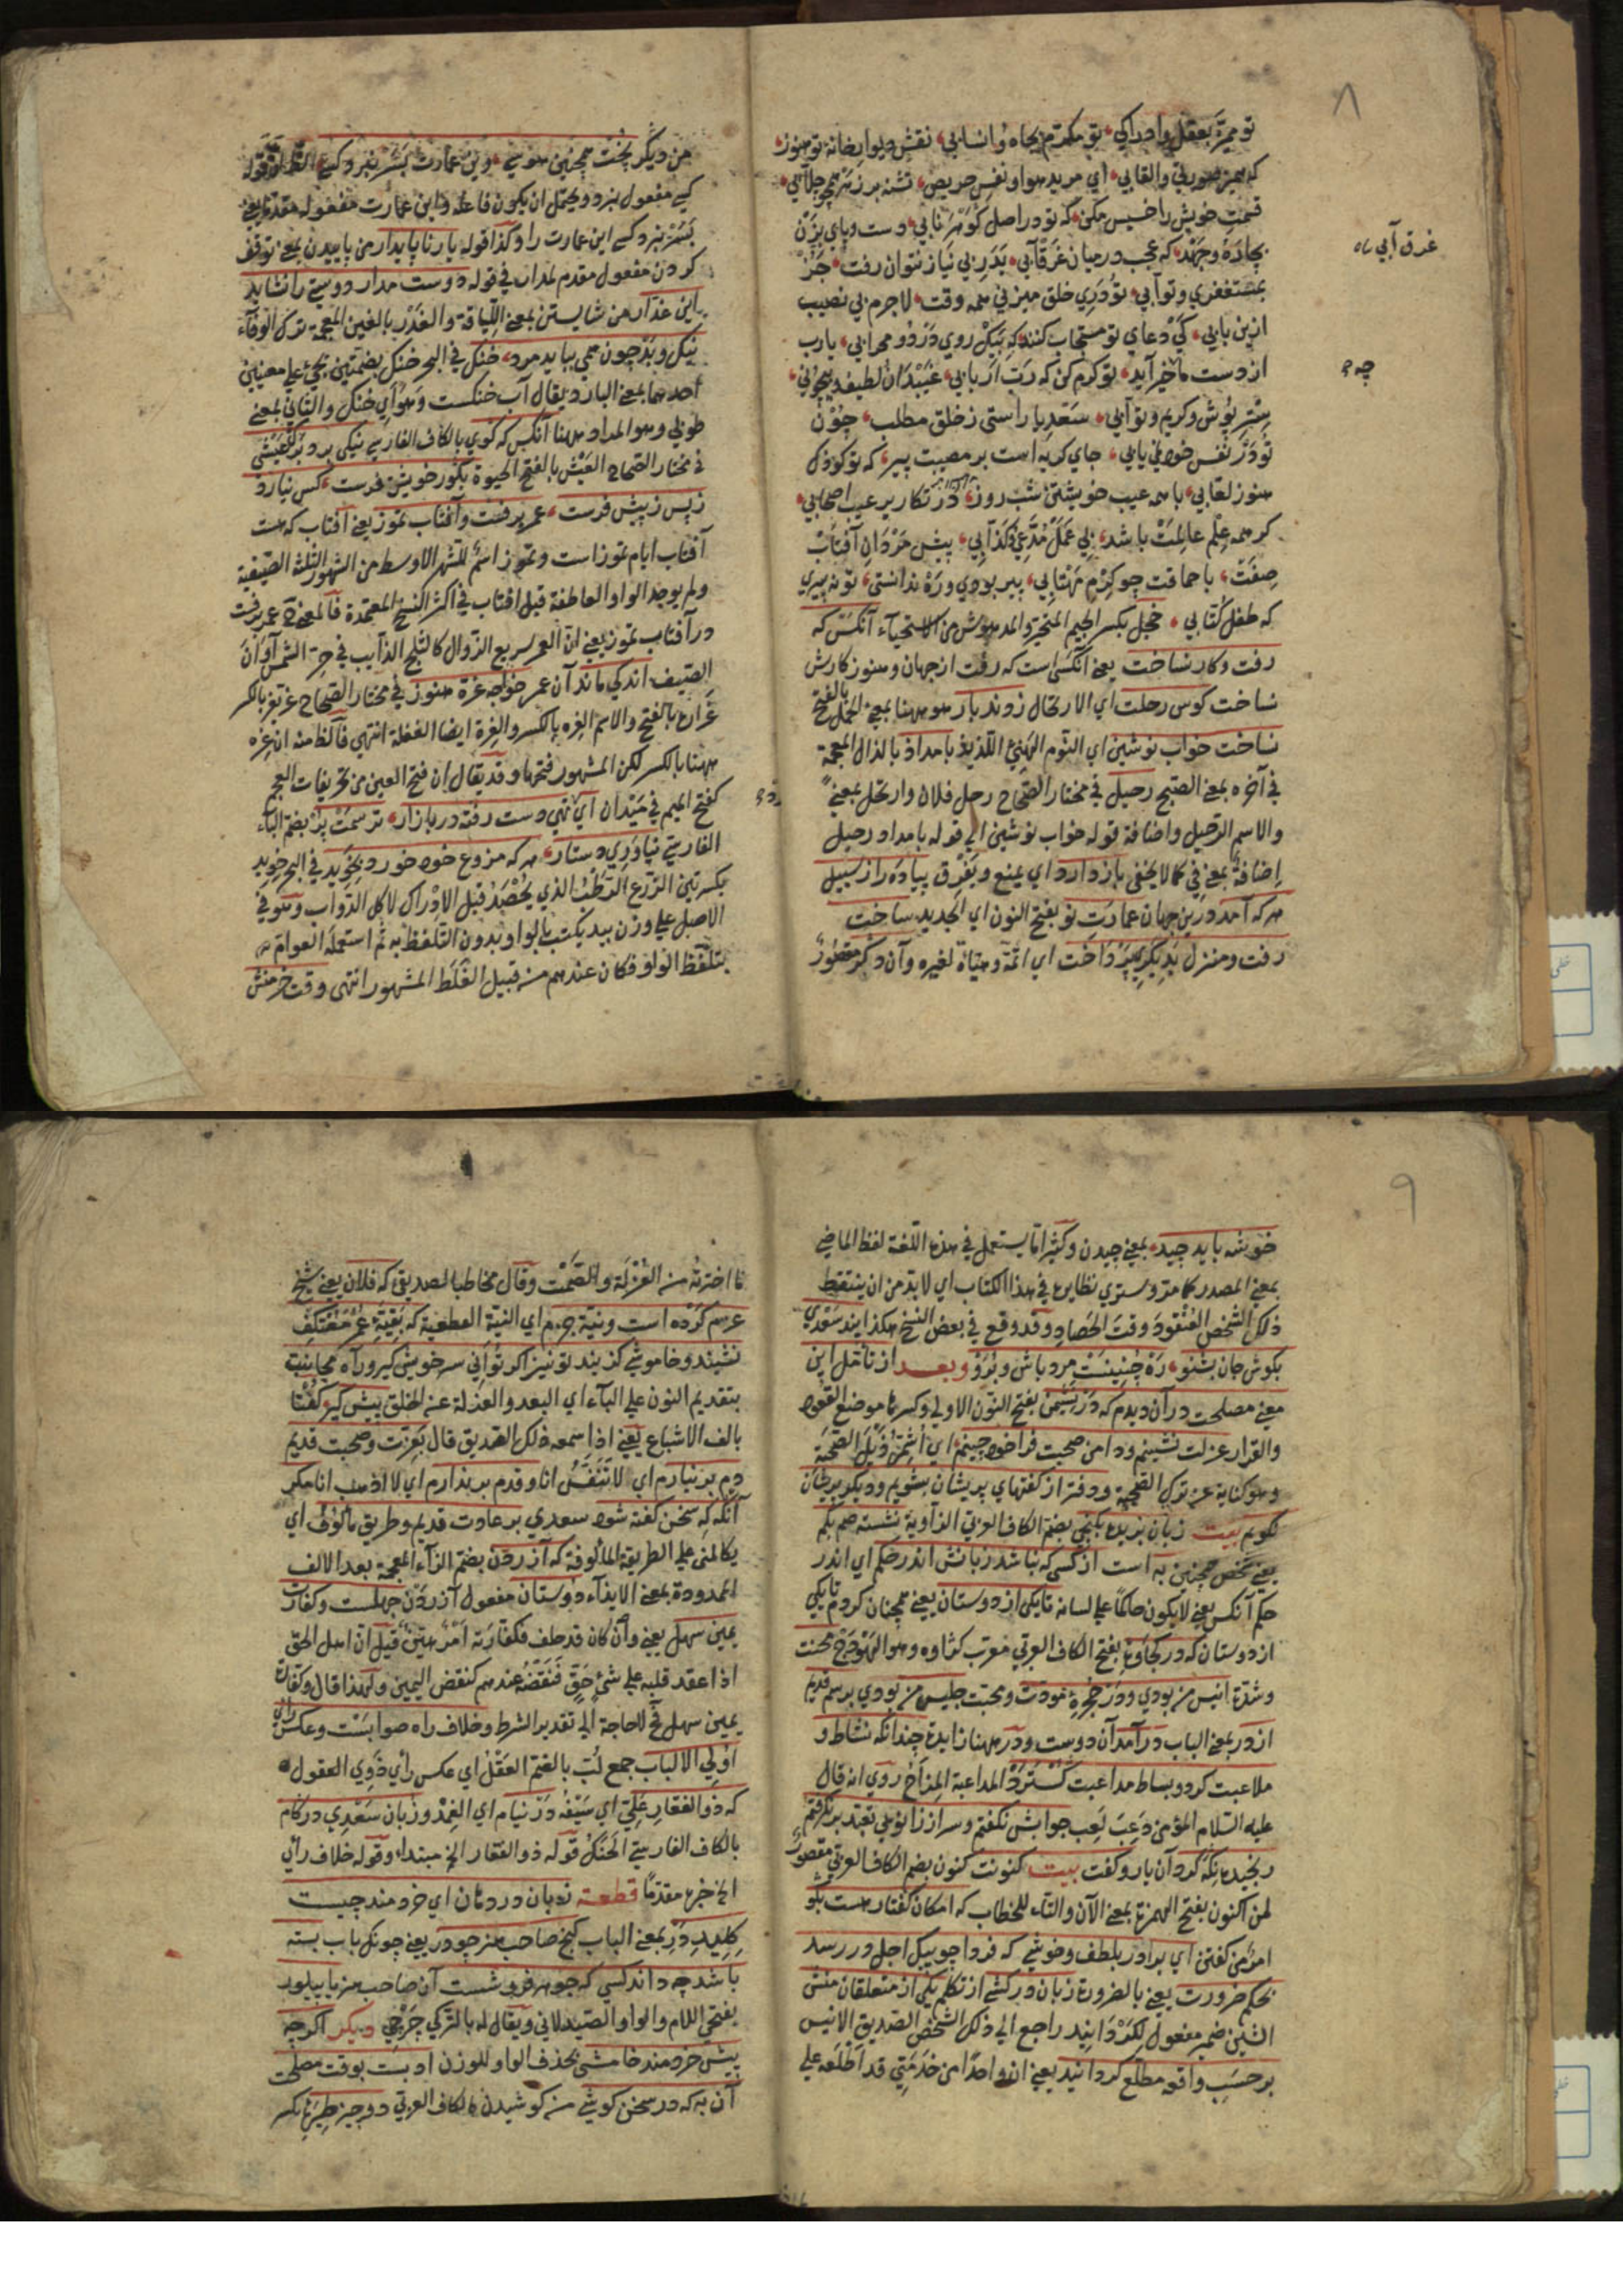 ٨
تو ممیزّ بعقل وادراکی تو مکرّم بجاه وانسابی نقش دیوار خانهٔ تو هنوز
که همین صورتی والقابی ای مرید هوا ونفس حریص تشنه بر زهر همچو جلابی
قیمت خویش را خسیس مکن که تو در اصل گوهر نابی دست وپای بزن
بچاره وجهد که عجب در میان غرقابی بدر بی نیاز نتوان رفت جز
غرق آبی
بمستغفری وتوابی تو در خلق میزنی همه وقت لاجرم بی نصیب
ازین بابی کی دعای تو مستجاب کنند که بیک روی در دو محرابی یارب
از دست ما چه خیر آید تو کرم کن که رب اربابی غیبدان لطیف وبیچونی
چه
ستر پوش وکریم وتوابی سعدیا راستی ز خلق مطلب چون
تو در نفس خود نمی یابی جای گریه است بر مصیبت پیر که تو کودک
هنوز لعابی با همه عیب خویشتن شب روز در تکاپوی عیب اصحابی
گر همه علم عالمت باشد بی عمل مدعی وکذابی پیش مردان آفتاب
صفت باحماقت چو کرم مهتابی پیر بودی وره ندانستی تو نه پیری
که طفل کتابی خجل بکسر الجیم المتحیر والمدهوش من الاستحیاء آنکس که
رفت وکار نساخت یعنی آنکس است که رفت از جهان وهنوز کارش
نساخت کوس رحلت ای الارتحال زدند بار هو ههنا بمعنی الحمل بالفتح
نساخت خواب نوشین ای النوم الهنیئ اللذیذ بامداد بالذال المعجمة
فی آخره بمعنی الصبح رحیل فی مختار الصحاح رحل فلان وارتحل بمعنی
والاسم الرحیل واضافة قوله خواب نوشین الی قوله بامداد رحیل
اضافة بمعنی فی کما لا یخفی باز دارد ای یمنع ویفرق پیاده را ز سبیل
هر که آمد درین جهان عمارت نو بفتح النون ای الجدید ساخت
رفت ومنزل بدیگری پرداخت ای اتمّه وهیّأه لغیره وآن دگر مقصور
من دیگر پخت همچنین هوسی وین عمارت بسر نبرد کسی الظاهر ان قوله
کسی مفعول نبرد ویحتمل ان یکون فاعله واین عمارت مفعوله مقدم یعنی
بسر نبرد کسی این عمارت را وکذا قوله یار ناپایدار من پاییدن بمعنی توقف
کردن مفعول مقدم لمدار فی قوله دوست مدار دوستی را نشاید
این غدار من شایستن بمعنی اللیاقة والغدر بالغین المعجمة ترک الوفاء
نیک وبد چون همی بباید مرد خنک فی البحر خنک بضمتین یجیء علی معنیین
احدهما بمعنی البارد یقال آب خنکست وهوای خنک والثانی بمعنی
طوبی وهو المراد ههنا آنکس که گوی بالکاف الفارسی نیکی برد برگ عیشی
فی مختار الصحاح العیش بالفتح الحیوة بگور خویش فرست کس نیارد
ز پس ز پیش فرست عمر برفست وآفتاب تموز یعنی آفتاب که هست
آفتاب ایام تموز است وتموز اسم للشهر الاوسط من الشهور الثلث الصیفیة
ولم یوجد الواو العاطفة قبل افتاب فی اکثر النسخ المعتمدة فالمعنی ح عمر برفت
در آفتاب تموز یعنی ان العمر سریع الزوال کالثلج الذائب فی حر الشمس اوان
الصیف اندکی ماند آن عمر خواجه غره هنوز فی مختار الصحاح غر یغر بالکسر
غرارة بالفتح والاسم الغره بالکسر والغرة ایضا الغفلة انتهی فالظ منه ان غره
ههنا بالکسر لکن المشهور فتحها وقد یقال ان فتح الغین من تحریفات العجم
کفتح المیم فی میدان ای تهی دست رفته در بازار ترسمت پر بضم الباء
الفارسیّ نیاوری دستار هر که مزروع خود خورد بخوید فی البحر خوید
بکسرتین الزرع الرطب الذی یحصد قبل الادراک لاکل الدواب وهو فی
الاصل علی وزن بید یکتب بالواو وبدون التلفظ به ثم استعمله العوام
بتلفظ الواو فکان عندهم من قبیل الغلط المشهور انتهی وقت خرمنش
٩
خوشه باید چید بمعنی چیدن وکثیرا ما یستعمل فی هذه اللغة لفظ الماضی
بمعنی المصدر کما مر وستری نظایره فی هذا الکتاب ای لا بد من ان یلتقط
ذلک الشخص العنقود وقت الحصاد وقد وقع فی بعض النسخ هکذا پند سعدی
بگوش جان بشنو ره چنینست مرد باش وبرو وبعد از تأمل این
معنی مصلحت در آن دیدم که در نشیمن بفتح النون الاولی وکسر ها موضع القعود
والقرار عزلت نشینم ودامن صحبت فراخود چینم ای اشمّر ذیل الصحبة
وهو کنایة عن ترک الصحبة ودفتر از گفتهای پریشان بشویم ودیگر پریشان
نگویم بیت زبان بریده بکنجی بضم الکاف العربی الزاویة نشسته صم بکم
یعنی شخص همچنین به است از کسی که نباشد زبانش اندر حکم ای اندر
حکم آنکس یعنی لا یکون حاکما علی لسانه تا یکی از دوستان یعنی همچنان کردم تا یکی
از دوستان که در کجاوه بفتح الکاف العربی معرب کژاوه وهو الهودج محنت
وشدة انیس من بودی ودر حجرهٔ مودت ومحبت جلیس من بودی برسم قدیم
از در بمعنی الباب در آمد آن دوست ودر ههنا زایدة چندانکه نشاط و
ملاعبت کرد وبساط مداعبت گسترد المداعبة المزاح روی انه قال
علیه السلام المؤمن دعب لعب جوابش نگفتم وسر از زانوی تعبد بر نگرفتم
رنجیده نگه کرد آن یار وگفت بیت کنونت کنون بضم الکاف العربی مقصور
لمن اکنون بفتح الهمزة بمعنی الآن والتاء للخطاب که امکان گفتار هست بگو
امر من گفتن ای برادر بلطف وخوشی که فردا چو پیک اجل در رسد
بحکم ضرورت یعنی بالضرورة زبان در کشی از تکلم یکی از متعلقان منش
الشین ضمیر مفعول لگردانید راجع الی ذلک الشخص الصدیق الانیس
بر حسب واقعه مطلع گردانید یعنی ان واحدا من خدمتی قد اطلعه علی
ما اخترته من العزلة والصمت وقال مخاطبا لصدیقی که فلان یعنی شیخ
عزم کرده است ونیة جزم ای النیة القطعیة که بقیة عمر معتکف
نشیند وخاموشی گزیند تو نیز اگر توانی سر خویش گیر وراه مجانبت
بتقدیم النون علی الباء ای البعد والعزلة عن الخلق پیش گیر گفتا
بالف الاشباع یعنی اذا سمعه ذلک الصدیق قال بعزت وصحبت قدیم
دم بر نیارم ای لا تنفس انا وقدم بر ندارم ای لا اذهب انا مگر
آنگه که سخن گفته شود سعدی بر عادت قدیم وطریق مألوف ای
یکالمنی علی الطریقة المألوفة که آزردن بضم الزاء المعجمة بعد الالف
الممدودة بمعنی الایذاء دوستان مفعول آزردن جهلست وکفارت
یمین سهل یعنی وان کان قد حلف فکفارته امر هین قیل ان اهل الحق
اذا عقد قلبه علی شیء حق فنقضه عندهم کنقض الیمین ولهذا قال وکفارة
یمین سهل فح لا حاجة الی تقدیر الشرط وخلاف راه صوابست وعکس رای
اولی الالباب جمع لب بالضم العقل ای عکس رأی ذوی العقول
که ذوالفقار علی ای سیفه در نیام ای الغمد وزبان سعدی در کام
بالکاف الفارسی الحنک قوله ذوالفقار الخ مبتداء وقوله خلاف رأی
الخ خبره مقدما قطعه زبان در دهان ای خردمند چیست
کلید در بمعنی الباب گنج صاحب هنر چو در یعنی چونکه باب بسته
باشد چه داند کسی که جوهر فروشست آن صاحب هنر یا پیلور
بفتحی اللام والواو الصیدلانی ویقال له بالترکی چرچی دیگر اگرچه
پیش خردمند خامشی بحذف الواو للوزن ادبست بوقت مصلحت
آن به که در سخن کوشی من کوشیدن بالکاف العربی دو چیز طیرهٔ بکسر